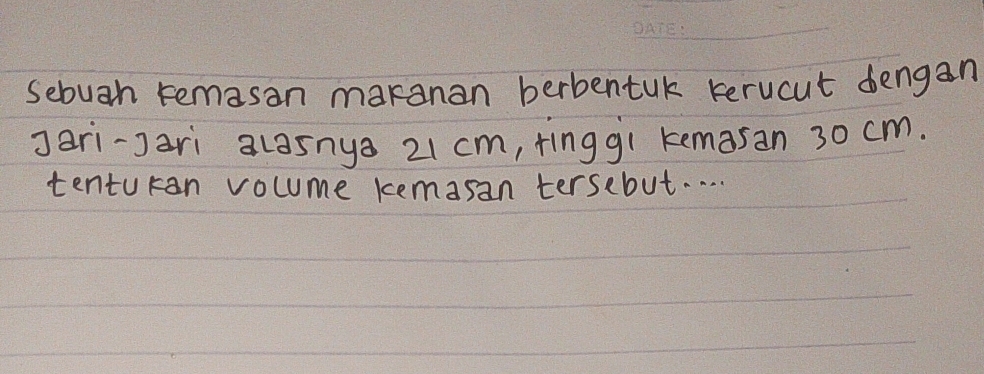 DATE:
Sebuah kemasan makanan berbentuk kerucut dengan
Jari-Jari alasnya 21 cm, tinggi kemasan 30 cm.
tentukan volume kemasan tersebut....